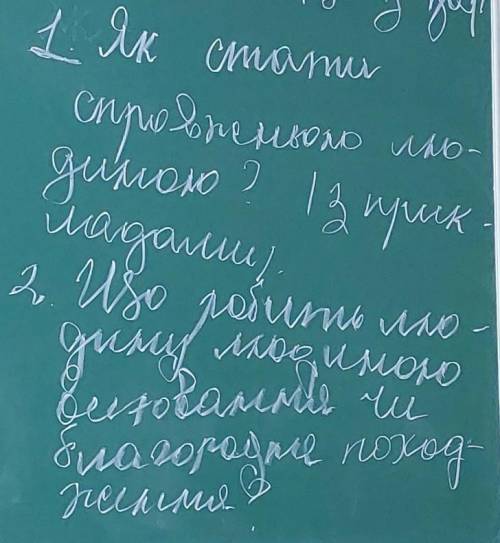 1. Як стати
справжньою лю-
диною? (з прик-
ладами).
2. Що робить лю-
дину людиною
виховання чи
благородне поход-
ження?